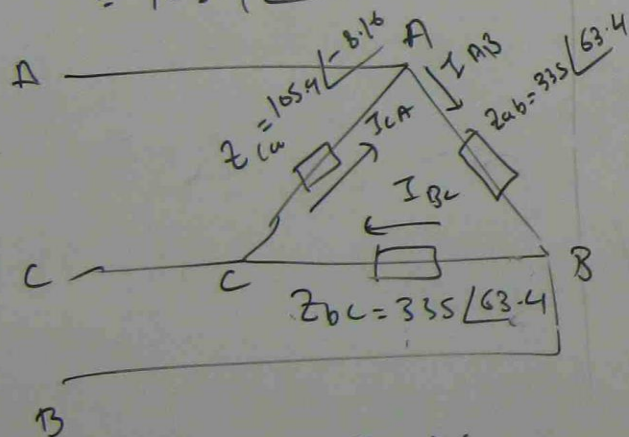 A
A
Z_ca = 105.4 ∠-8.16
I_CA
I_AB
Z_ab = 335 ∠63.4
I_BC
C
C
B
Z_bc = 335 ∠63.4
B